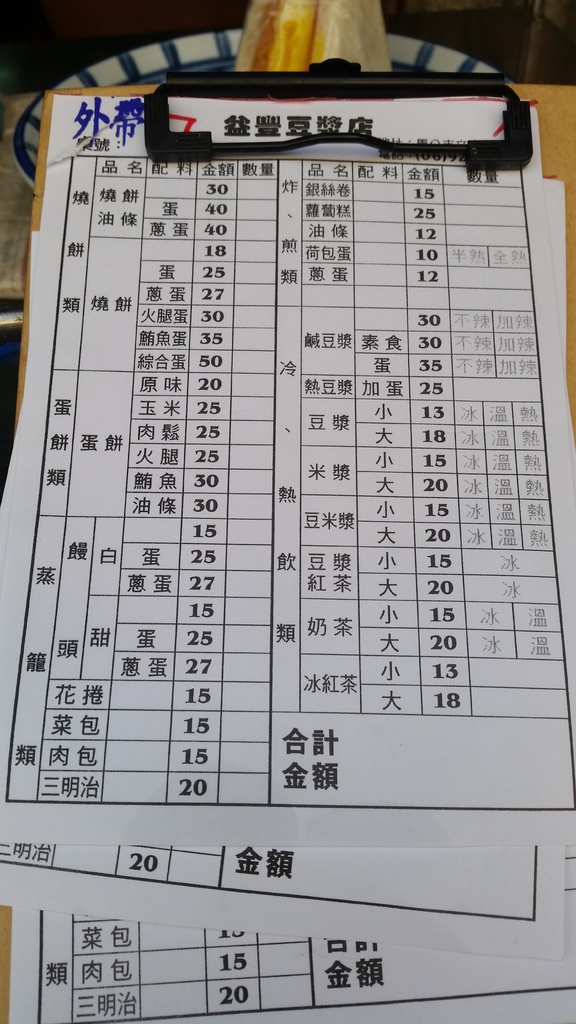 外帶
益豐豆漿店
桌號:
電話:(06)92
品名 配料 金額 數量 品名 配料 金額 數量
燒餅類
燒餅油條 30
蛋 40
蔥蛋 40
燒餅 18
蛋 25
蔥蛋 27
火腿蛋 30
鮪魚蛋 35
綜合蛋 50
蛋餅類
蛋餅 原味 20
玉米 25
肉鬆 25
火腿 25
鮪魚 30
油條 30
蒸籠類
饅頭 白 15
蛋 25
蔥蛋 27
甜 15
蛋 25
蔥蛋 27
花捲 15
菜包 15
肉包 15
三明治 20
炸、煎類
銀絲卷 15
蘿蔔糕 25
油條 12
荷包蛋 10 半熟 全熟
蔥蛋 12
冷、熱飲類
鹹豆漿 30 不辣 加辣
素食 30 不辣 加辣
蛋 35 不辣 加辣
熱豆漿 加蛋 25
豆漿 小 13 冰 溫 熱
大 18 冰 溫 熱
米漿 小 15 冰 溫 熱
大 20 冰 溫 熱
豆米漿 小 15 冰 溫 熱
大 20 冰 溫 熱
豆漿紅茶 小 15 冰
大 20 冰
奶茶 小 15 冰 溫
大 20 冰 溫
冰紅茶 小 13
大 18
合計
金額
三明治 20 金額
菜包 15 合計
類 肉包 15 金額
三明治 20